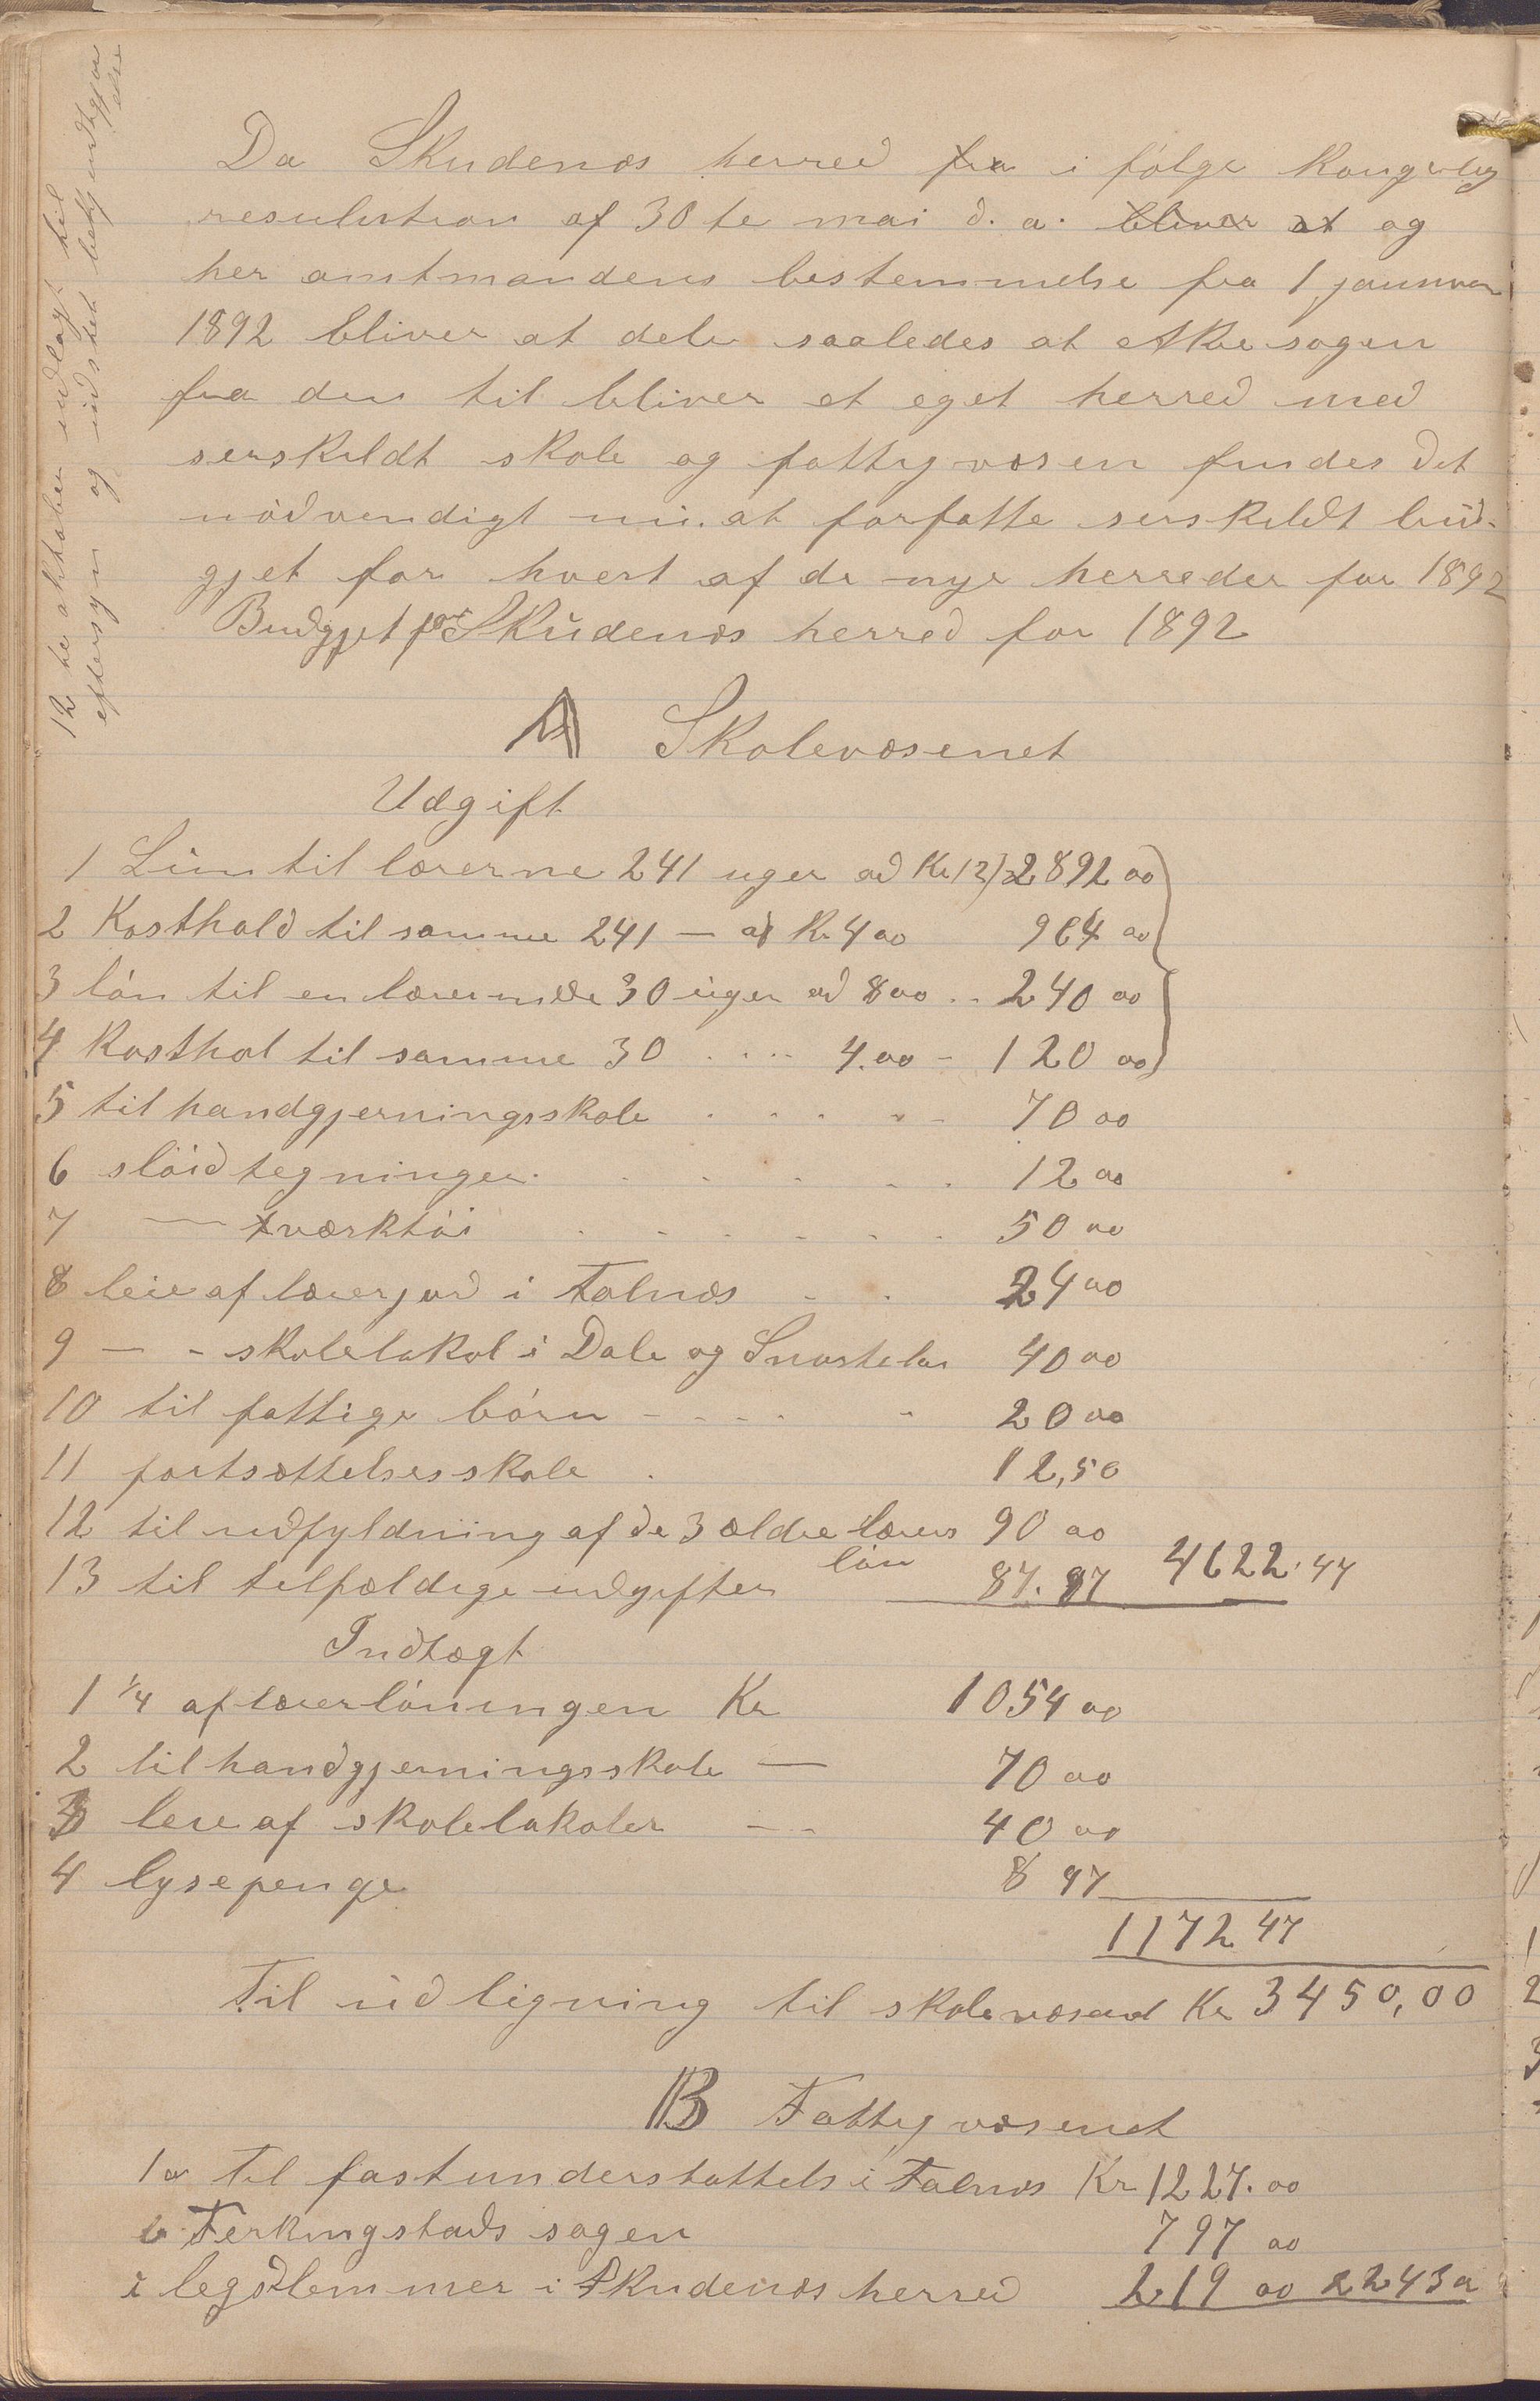 12 te oktober udlagt til
eftersyn og
Da Skudenæs herred fra i følge Kongelig
resulution af 30 te mai d. a. bliver at og
her amtmandens bestemmelse fra 1 januuar
1892 bliver at dele saaledes at Akre sogen
fra den til bliver et eget herred med
serskildt skole og fattigvæsen findes det
nødvendigt nu. at forfatte serskildt bud-
gjet for hvert af de nye herreder for 1892
Budgjet for Skudenæs herred for 1892
A Skolevæsenet
Udgift
1 Lön til lærerne 241 uger ad Kr 12 2892 00
2 Kosthald til samme 241 — ad Kr 4 00 964 00
3 lön til en lærerinde 30 uger ad 8 00 .. 240 00
4 Kosthol til samme 30 .... 4.00 - 120 00
5 til handgjerningsskole . . . . - 70 00
6 slöid tegninger. . . . . . 12 00
7 — værktöi . . . . . . 50 00
8 leie af lærerjord i Falnæs . . 24 00
9 — - skolelokal i Dale og Snørteland 40 00
10 til fattige börn - - - - - 20 00
11 fortsættelsesskole . 12,50
12 til udfyldning af de 3 ældre lærers 90 00
lön
13 til tilfældige udgifter 87.97 4622.47
Indtægt
1 1/4 af lærerlöningen Kr 1054 00
2 til handgjerningsskole — 70 00
3 leie af skolelokaler — 40 00
4 lysepenge 8 47
1172 47
Til udligning til skolevæsend Kr 3450,00
B Fattigvæsenet
1 a Til fastunderstøttels i Falnæs Kr 1227.00
b Ferkingstads sogen 797 00
i legdlemmer i Skudenæs herred 219 00 2243 0